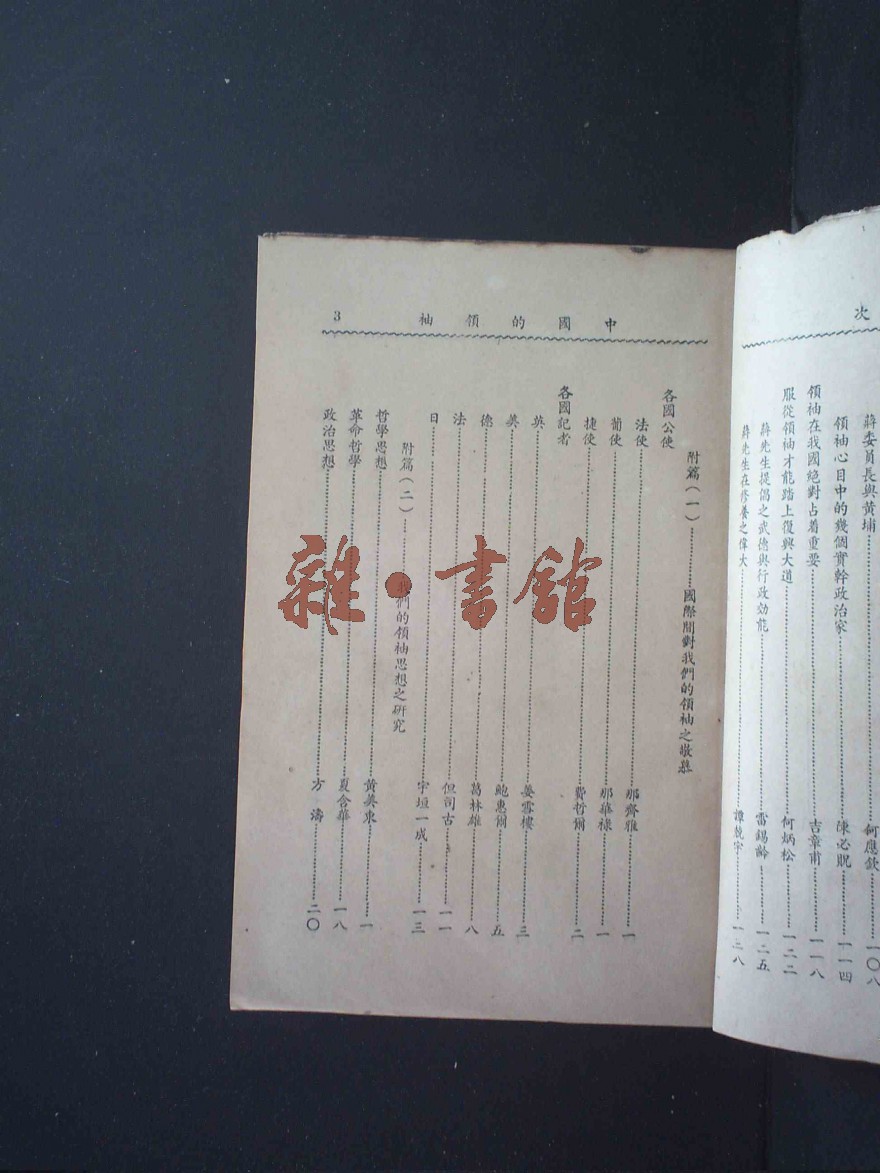 次
蔣委員長與黃埔…………何應欽…………一〇八
領袖心目中的幾個實幹政治家…………陳必貺…………一一四
領袖在我國絕對占着重要…………吉章甫…………一一八
服從領袖才能踏上復興大道…………何炳松…………一二二
蔣先生提倡之武德與行政効能…………雷錫齡…………一二五
蔣先生在修養之偉大…………譚兢宇…………一二八
中國的領袖 3
附篇(一)…………國際間對我們的領袖之敬慕
各國公使
法使…………那齊雅…………一
葡使…………那華祿…………一
捷使…………費哲爾…………二
各國記者
英…………姜雪樓…………三
美…………鮑惠爾…………五
德…………葛林雄…………八
法…………但司古…………一一
日…………宇垣一成…………一三
附篇(二)…………我們的領袖思想之研究
哲學思想…………黃英東…………一
革命哲學…………夏含華…………一八
政治思想…………方濤…………二〇
雜·書館